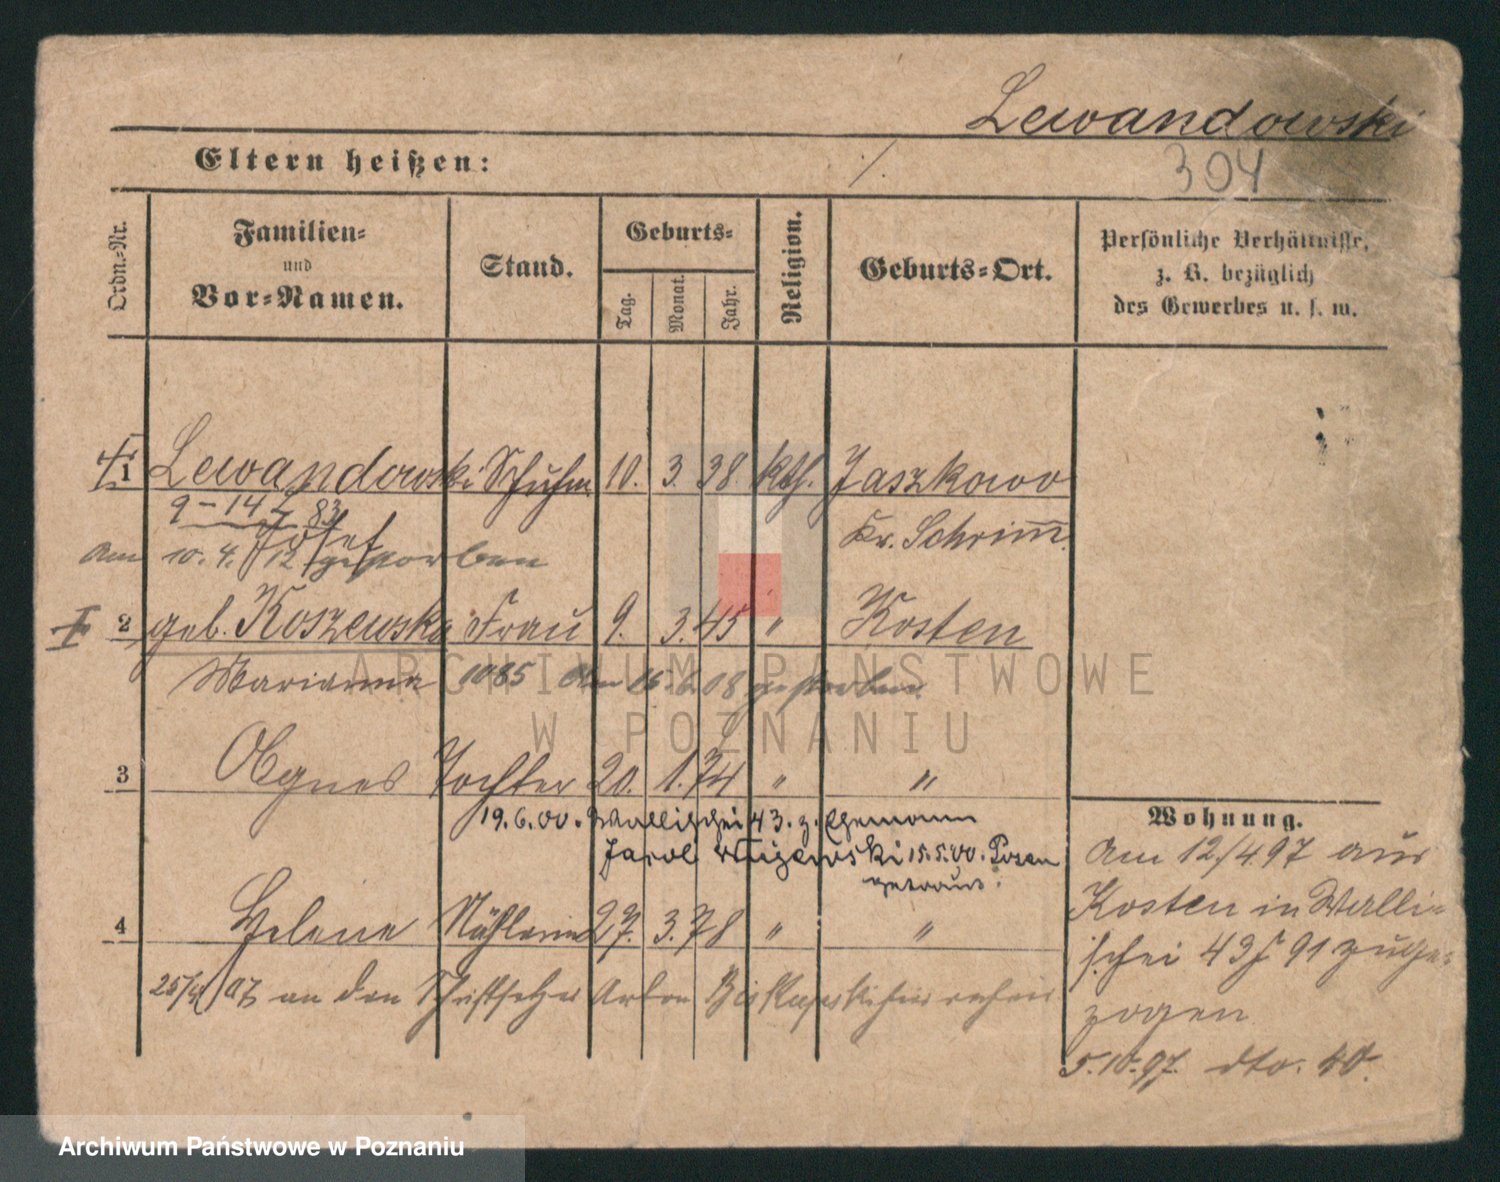 Lewandowski
Eltern heißen: ./.
304
Ordn.-Nr.
Familien-
und
Vor-Namen.
Stand.
Geburts-
Tag. Monat. Jahr.
Religion.
Geburts-Ort.
Persönliche Verhältnisse,
z. B. bezüglich
des Gewerbes u. s. w.
1 Lewandowski Schuhm. 10. 3. 38 kth. Jaszkowo
9-14 83
Josef Kr. Schrimm
Am 10. 4. 12 gestorben
2 geb. Koszewska Frau 9. 3. 45 " Kosten
Marianna 1085 Am 16. 6. 08 gestorben
3 Agnes Tochter 20. 1. 74 " "
19.6.00. Wallischei 43. z. Ehemann
15.5.00. Posen
getraut.
4 Helene Nähterin 27. 3. 78 " "
25/ 07 an den Schriftsetzer Anton
Wohnung.
Am 12/4 97 aus
Kosten in Walli-
schei 43 91 zuge-
zogen
5.10.97. dto. 40.
ARCHIWUM PAŃSTWOWE
W POZNANIU
Archiwum Państwowe w Poznaniu